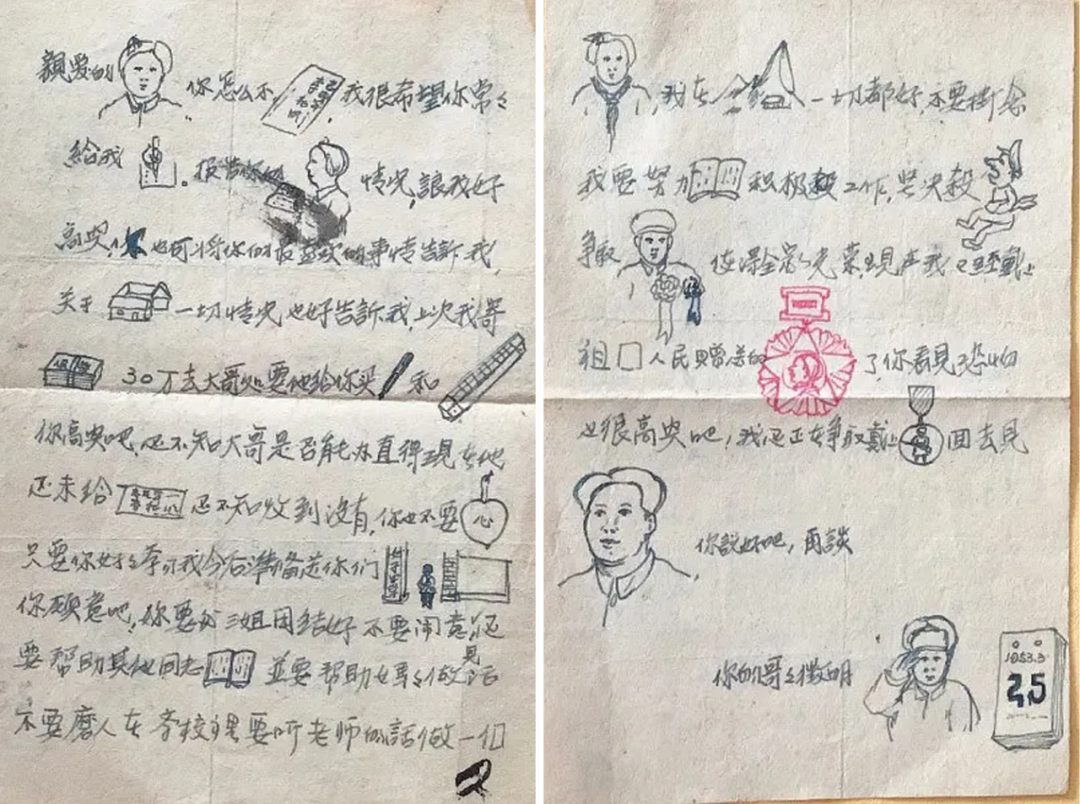 親爱的
你怎么不 我很希望你常々
給我 报告你的 情况,讓我好
高兴, 也可将你们最喜欢的事情告訴我,
关于 一切情况也好告訴我,上次我寄
30万去大哥处要他給你买 和
你高兴吧,还不知大哥是否能办直得现在他
还未给 还不知收到没有,你也不要 心
只要你好々学习我今后準备送你们
你願意吧,你要和三姐团结好不要闹意見还
要帮助其他同志 並要帮助妈々做活
不要磨人在学校裡要听老师的話做一们
,我在 一切都好,不要掛念
我要努力 积极 工作,坚决殺
争取 使得全家光荣,現在我已經戴上
祖 人民贈送的 了你看見恐怕
也很高兴吧,我还正在争取戴上 回去見
你說好吧,再談
你的哥々徵明
1953.3
25